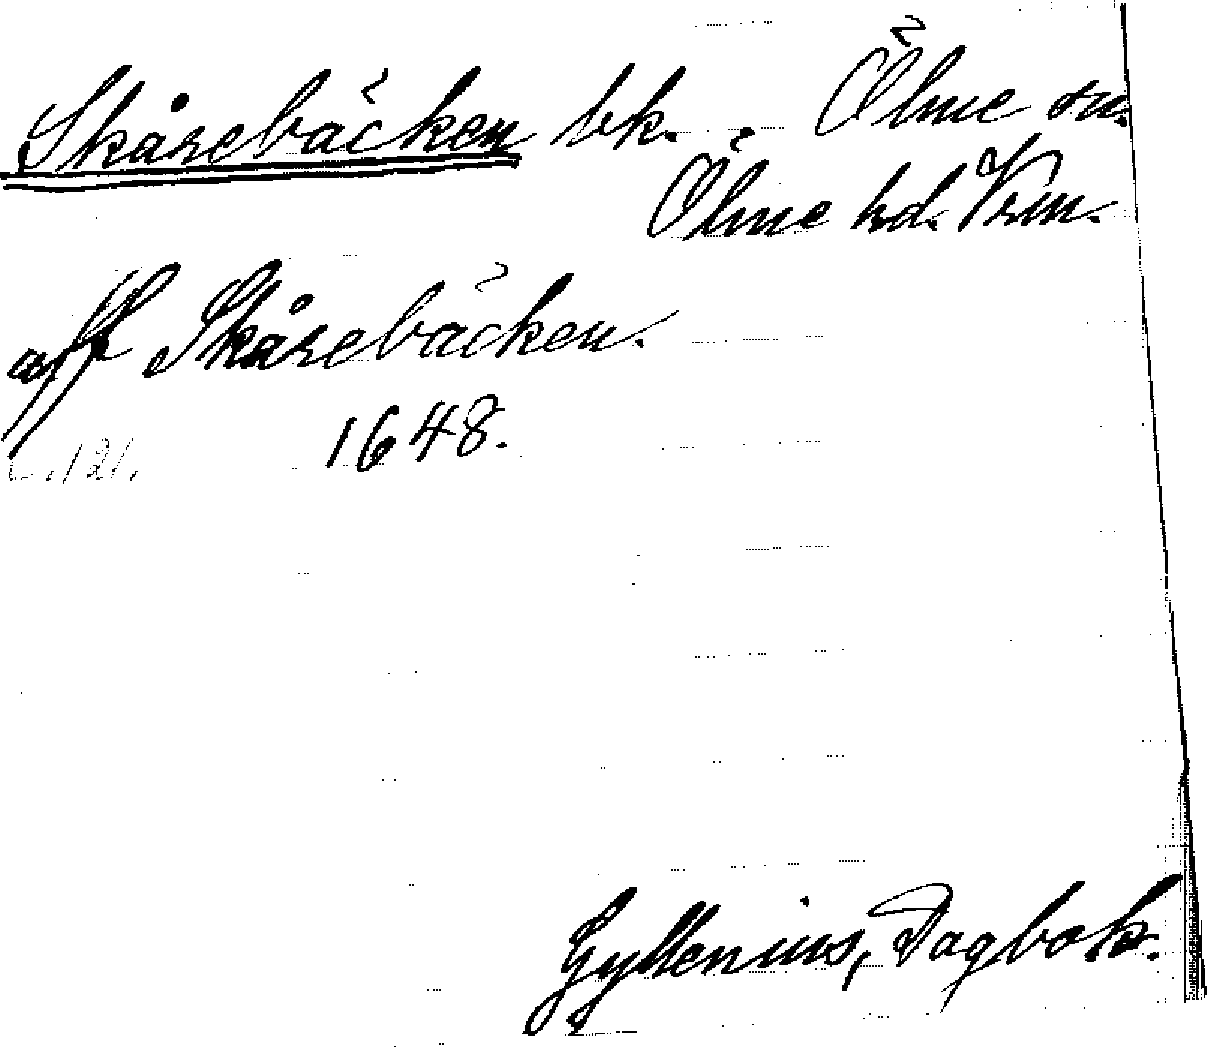 Skårebäcken bk. Ölme sn.
Ölme hd. Vrm.
aff Skårebäcken.
1648.
s. 121.
Gyllenius, Dagbok.